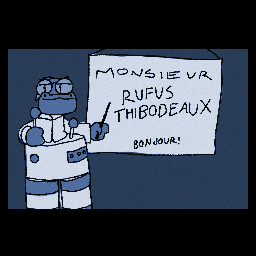 MONSIEUR
RUFUS
THIBODEAUX
BONJOUR!